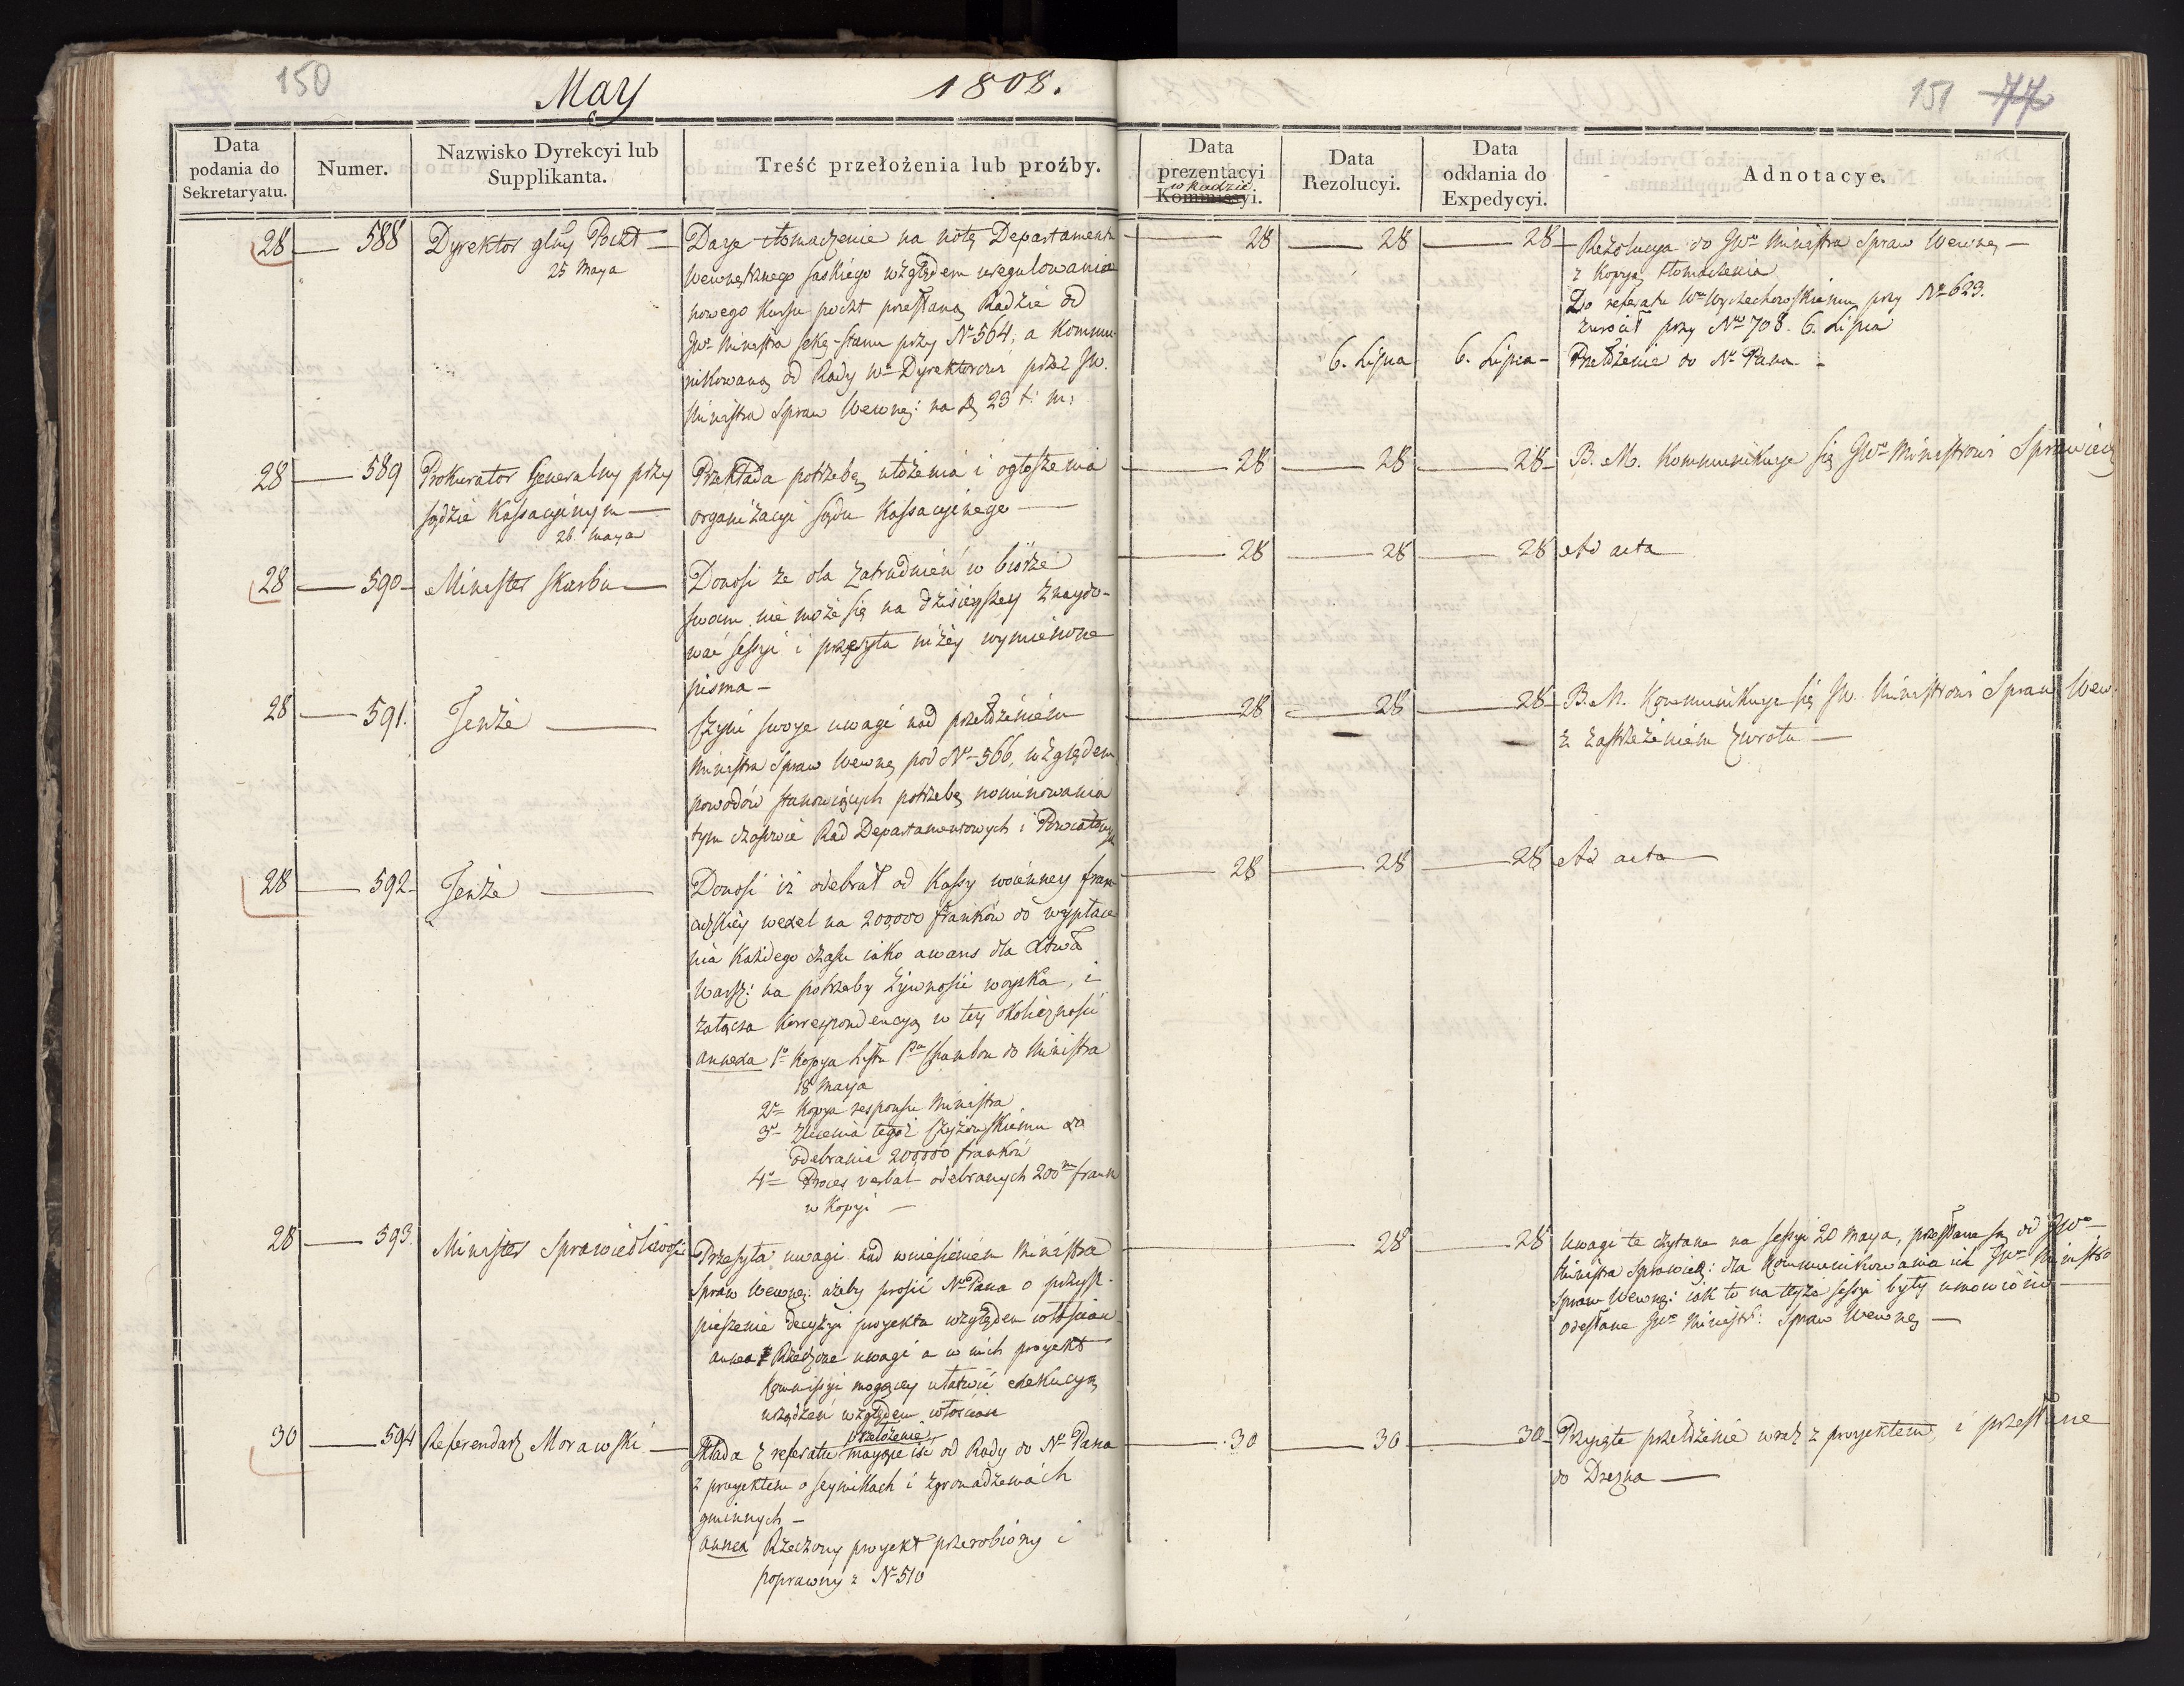 150
May 1808.
151 77
Data podania do Sekretaryatu.
Numer.
Nazwisko Dyrekcyi lub Supplikanta.
Treść przełożenia lub proźby.
Data prezentacyi w Radzie Kommissyi.
Data Rezolucyi.
Data oddania do Expedycyi.
Adnotacye.
28 — 588 Dyrektor glny Poczt —
25 Maya
Daje tłomaczenie na notę Departamentu
Wewnętrznego saskiego względem uregulowania
nowego kursu poczt przesłaną Radzie od
JWo Ministra Sekr. Stanu przy No 564, a kommu-
nikowaną od Rady Wo Dyrektorowi przez JW.
Ministra Spraw Wewnę: na d. 23 t: m:
28 — 28 — 28 — Rezolucya do JWo Ministra Spraw Wewnę —
z kopyą tłomaczenia
Do referatu Wo Wyczechowskiemu przy No 623.
zwrócił przy No 708. 6. Lipca
6. Lipca 6. Lipca — Przełożenie do No Pana —
28 — 589 Prokurator Generalny przy
sądzie Kassacyinym —
26. maya
Przekłada potrzebę ułożenia i ogłoszenia
organizacyi sądu Kassacyinego —
28 — 28 — 28 — B. M. kommunikuje się JWo Ministrowi Sprawiedl
28 — 590 — Minister Skarbu —
Donosi że dla zatrudnień w biórze
swoim nie może się na dzisieyszey znaydo-
wać sessyi i przesyła niżey wymienione
pisma —
28 — 28 — 28 Ad acta
28 — 591. Tenże —
Czyni swoje uwagi nad przełożeniem
Ministra Spraw Wewnę pod No 566, względem
powodów stanowiących potrzebę nominowania
tym czasowie Rad Departamentowych i Powiatowych
28 — 28 — 28 — B. M. kommunikuje się JW. Ministrowi Spraw Wew.
z zastrzeżeniem zwrotu —
28 — 592 — Tenże —
Donosi iż odebrał od Kassy woienney fran-
cuzkiey wexel na 200,000 franków do wypłace-
nia każdego czasu iako awans dla
Warsz: na potrzeby żywności woyska, i
załącza korrespondencyą w tey okoliczności
annexa 1o Kopya listu Pa Chambon do Ministra
18 Maya
2o Kopya responsu Ministra
3o Zlecenia tegoż Czyżewskiemu do
odebrania 200,000 franków
4o Proces verbal odebranych 200m frank
w kopyi —
28 — 28 — 28 Ad acta —
28 — 593. Minister Sprawiedliwości
Przesyła uwagi nad wniesieniem Ministra
Spraw Wewnę: ażeby prosić No Pana o przysp-
pieszenie decyzyi projektu względem włościan
annex Rzeczone uwagi a w nich projekt
Kommissyi mogącey ułatwić exekucyą
urządzeń względem włościan
28 — 28 Uwagi te czytane na sessyi 20 Maya, przesłane są od JWo
Ministra Sprawiedl: dla kommunikowania ich JWo Ministro
Spraw Wewnę: iak to na teyże sessyi było umówione —
odesłane JWo Ministr: Spraw Wewnę —
30 — 594 Referendarz Morawski —
Składa z referatu przełożenie maiące iść od Rady do No Pana
z projektem o seymikach i zgromadzeniach
gminnych —
annex Rzeczony projekt przerobiony i
poprawny z No 510
30 — 30 — 30 — Przyięte przełożenie wraz z projektem, i przesłane
do Drezna —